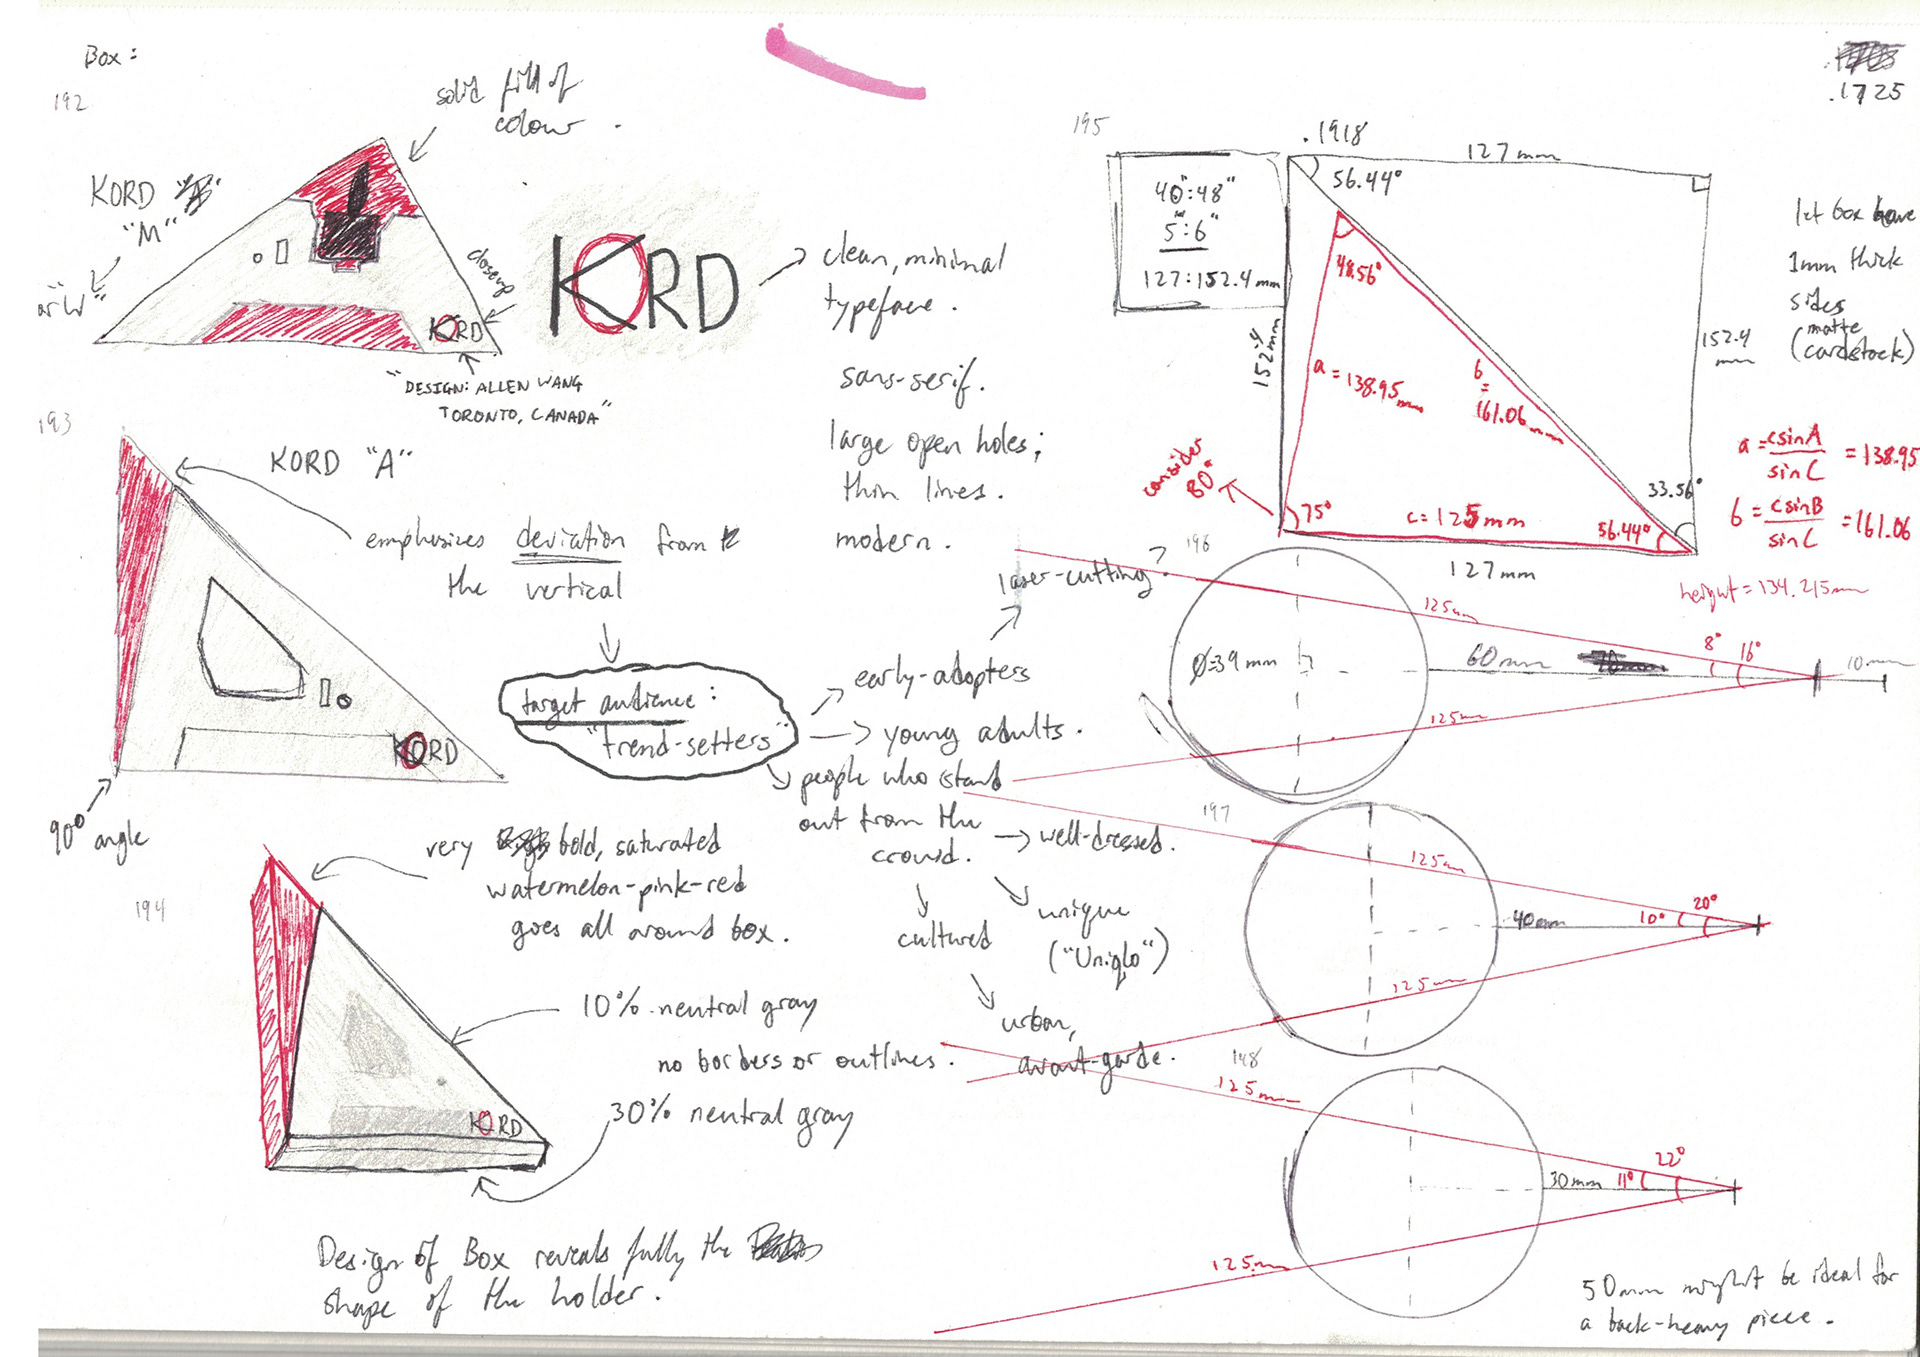 Box:
192
solid fill of
colour.
KORD
"M"
or "W"
closeup
KORD
"DESIGN: ALLEN WANG
TORONTO, CANADA"
KORD
clean, minimal
typeface.
sans-serif.
large open holes;
thin lines.
modern.
193
KORD "A"
emphasizes deviation from
the vertical
KORD
90° angle
target audience:
"trend-setters"
early-adopters
laser-cutting?
young adults.
people who stand
out from the
crowd.
well-dressed.
unique
("Uniqlo")
cultured
urban,
avant-garde.
194
very bold, saturated
watermelon-pink-red
goes all around box.
10% neutral gray
no borders or outlines.
30% neutral gray
KORD
Design of Box reveals fully the
shape of the holder.
.1725
195
.1918
127mm
40":48"
5":6"
127:152.4mm
56.44°
48.56°
152.4mm
a=138.95mm
b
=
161.06mm
152.4
mm
33.56°
consider
80°
75°
c=125mm
56.44°
127mm
let box have
1mm thick
sides
(matte
cardstock)
a = csinA / sinC = 138.95
b = csinB / sinC = 161.06
height = 134.215mm
196
125mm
Ø=39mm
60mm
8°
16°
10mm
125mm
197
125mm
40mm
10°
20°
125mm
148
125mm
30mm
11°
22°
125mm
50mm might be ideal for
a back-heavy piece.